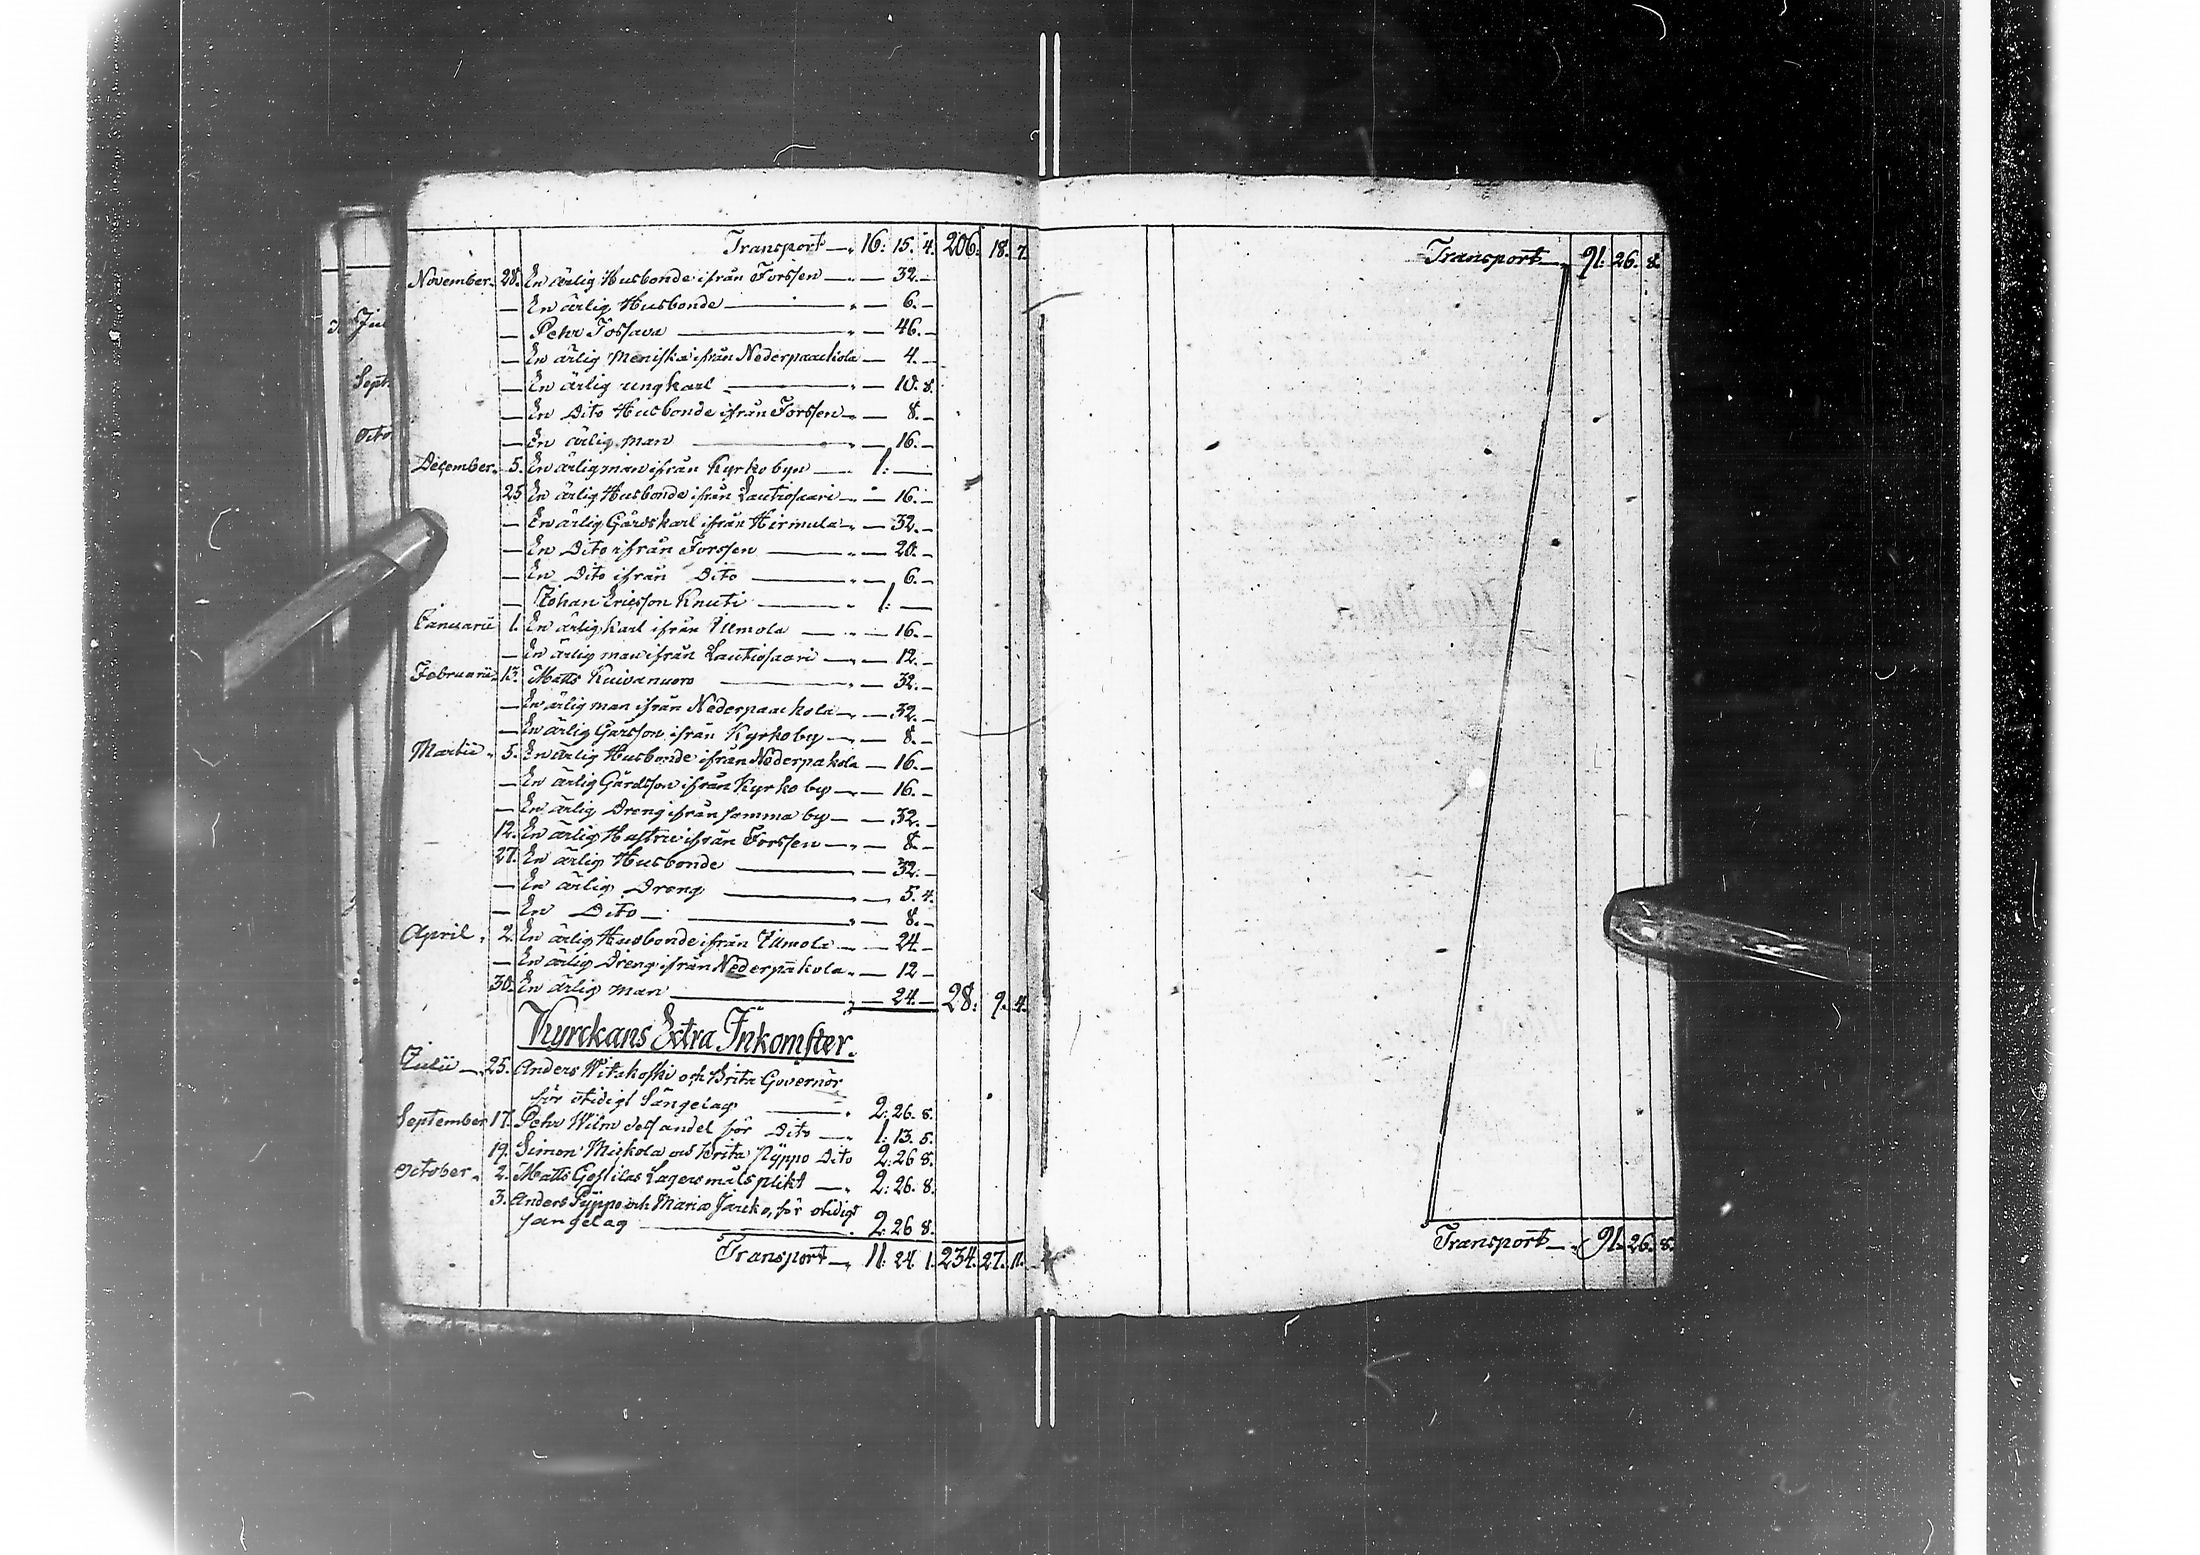 Transport — 16: 15. 4. 206. 18. 7.
November. 28. En ärlig Husbonde ifrån Forssen — — 32. —
— En ärlig Husbonde — — 6. —
— Pehr Tossava — — 46. —
— En ärlig Meniska ifrån Nederpaackola — 4. —
— En ärlig ung karl — — 10. 8.
— En Dito Husbonde ifrån Forssen — — 8. —
— En ärlig man — — 16. —
December. 5. En ärlig man ifrån Kyrko byn — 1: —
25 En ärlig Husbonde ifrån Lautiosaari — — 16. —
— En ärlig Gårdskarl ifrån Hirmula — — 32. —
— En Dito ifrån Forssen — — 20. —
— En Dito ifrån Dito — — 6. —
— Johan Ericsson Knuti — 1: —
Januarii 1. En ärlig karl ifrån Illmola — — 16. —
— En ärlig man ifrån Lautiosaari — — 12. —
Februarii. 13. Matts Kuivanuoro — — 32. —
— En ärlig man ifrån Nederpaackola — — 32. —
— En ärlig Gårsson ifrån Kyrkoby — — 8. —
Martii. 5. En ärlig Husbonde ifrån Nederpakola — 16. —
— En ärlig Gårdsson ifrån Kyrko by — — 16. —
— En ärlig Dreng ifrån samma by — — 32. —
12. En ärlig Hustru ifrån Forssen — — 8 —
27. En ärlig Husbonde — — 32. —
— En ärlig Dreng — — 5. 4.
— En Dito — — 8. —
April. 2. En ärlig Husbonde ifrån Illmola — — 24 —
— En ärlig Dreng ifrån Nederpakola. — 12 —
30. En ärlig man — — 24. — 28. 9. 4.
Kyrckans Extra Inkomster.
Julii — 25. Anders Witikoski och Brita Guvernör
för otidigt Sängelag — 2: 26. 8.
September 17. Pehr Wilm dess andel för Dito — 1: 13. 5.
19. Simon Miekola och Brita Nyppo Dito 2: 26 8.
October. 2. Matts Lagersmåls plikt — 2: 26. 8.
3. Anders Pyppo och Maria Jarcko, för otidigt
sängelag — 2: 26 8.
Transport — 11: 24 1. 234. 27. 11.
Transport — 91: 26. 8.
Transport — 91. 26. 8.
Jul
Sept.
Octo